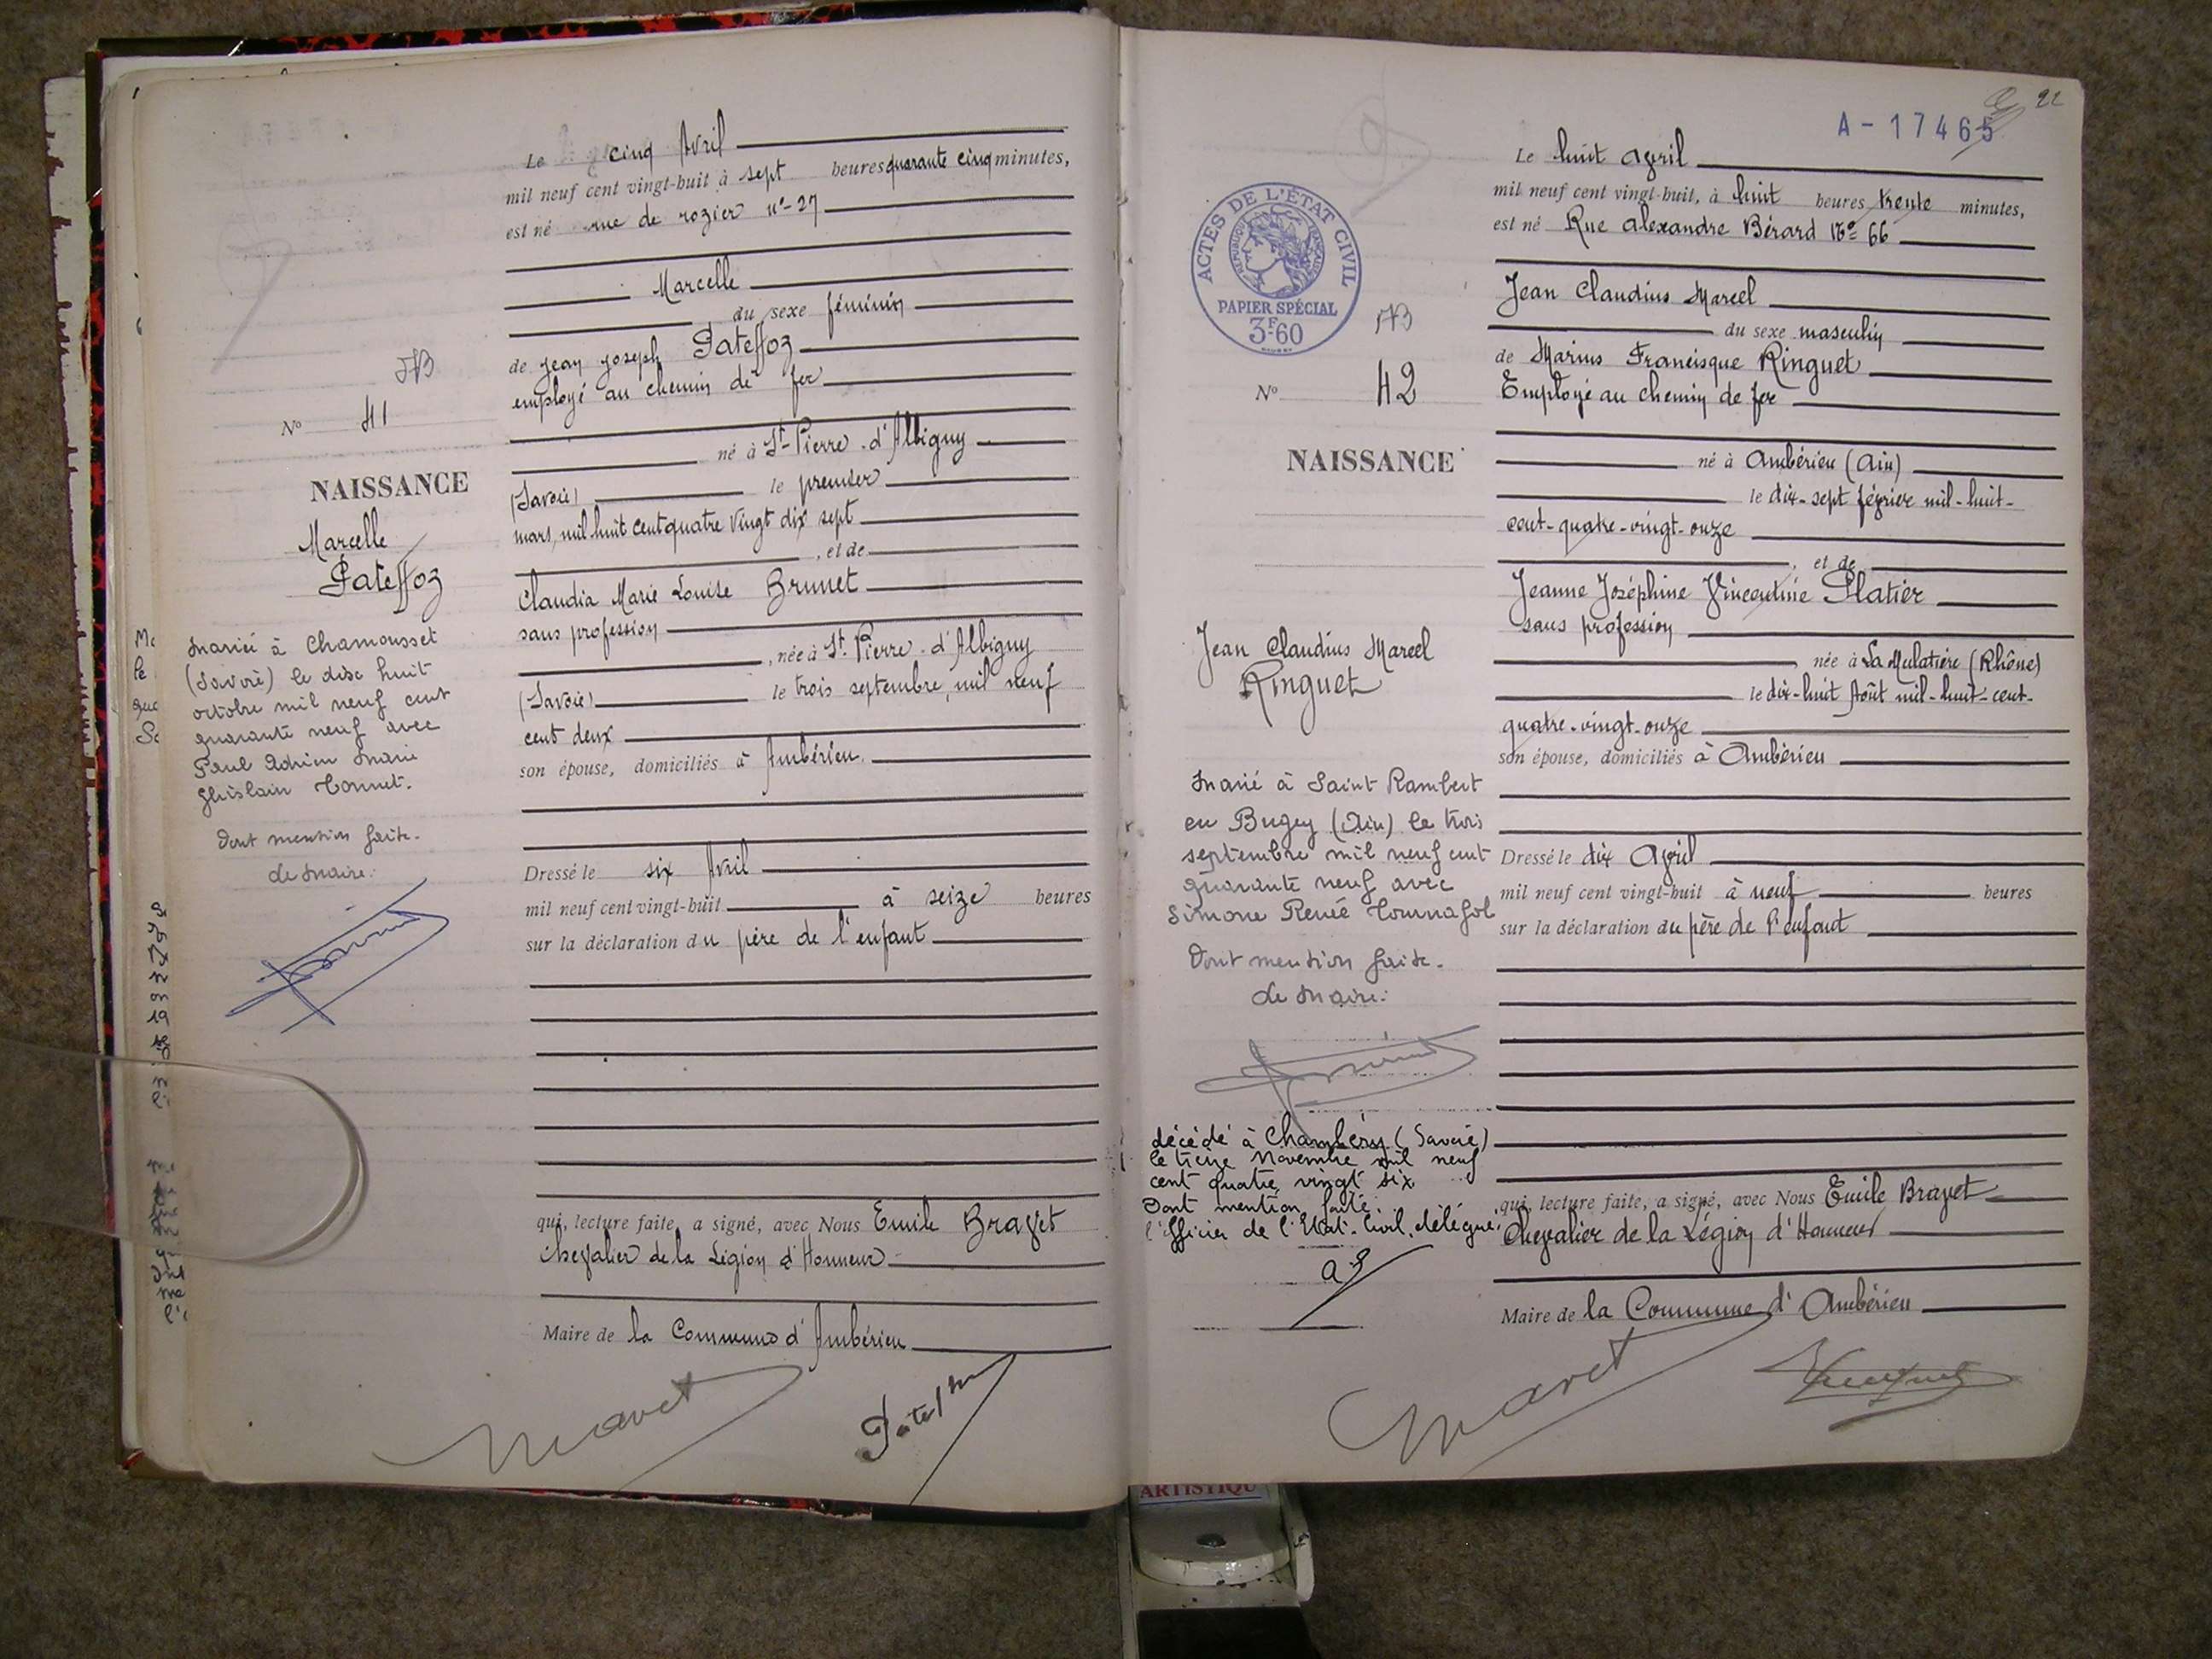 Le cinq Avril
mil neuf cent vingt-huit à sept heures quarante cinq minutes,
est né rue de rozier n°-27
Marcelle
du sexe féminin
de Jean Joseph Pateffoz
employé au chemin de fer
né à St-Pierre-d'Albigny
(Savoie) le premier
mars, mil huit cent quatre vingt dix sept
, et de
Claudia Marie Louise Brunet
sans profession
, née à St. Pierre-d'Albigny
(Savoie) le trois septembre, mil neuf
cent deux
son épouse, domiciliés à Ambérieu.
Dressé le six Avril
mil neuf cent vingt-huit à seize heures
sur la déclaration du père de l'enfant
qui, lecture faite, a signé, avec Nous Emile Bravet
Chevalier de la Légion d'Honneur
Maire de la Commune d'Ambérieu
Bravet
N° 41
NAISSANCE
Marcelle
Pateffoz
Mariée à Chamousset
(Savoie) le dix huit
octobre mil neuf cent
quarante neuf avec
Paul Adrien Marie
Ghislain Tonnet.
Dont mention faite.
Le Maire:
22
A-17465
ACTES DE L'ÉTAT CIVIL
RÉPUBLIQUE FRANÇAISE
PAPIER SPÉCIAL
3F60
N° 42
NAISSANCE
Jean Claudius Marcel
Ringuet
Marié à Saint Rambert
en Bugey (Ain) le trois
septembre mil neuf cent
quarante neuf avec
Simone Renée Tournafol
Dont mention faite.
Le Maire:
décédé à Chambéry (Savoie)
le treize Novembre mil neuf
cent quatre vingt six
Dont mention faite
l'Officier de l'Etat-Civil délégué.
Le huit Avril
mil neuf cent vingt-huit, à huit heures trente minutes,
est né Rue Alexandre Bérard N° 66
Jean Claudius Marcel
du sexe masculin
de Marius Francisque Ringuet
Employé au chemin de fer
né à Ambérieu (Ain)
le dix-sept février mil-huit-
cent-quatre-vingt-onze
, et de
Jeanne Joséphine Vincentine Platier
sans profession
née à La Mulatière (Rhône)
le dix-huit Août mil-huit-cent-
quatre-vingt-onze
son épouse, domiciliés à Ambérieu
Dressé le dix Avril
mil neuf cent vingt-huit à neuf heures
sur la déclaration du père de l'enfant
qui, lecture faite, a signé, avec Nous Emile Bravet
Chevalier de la Légion d'Honneur
Maire de la Commune d'Ambérieu
Bravet
ARTISTIQU